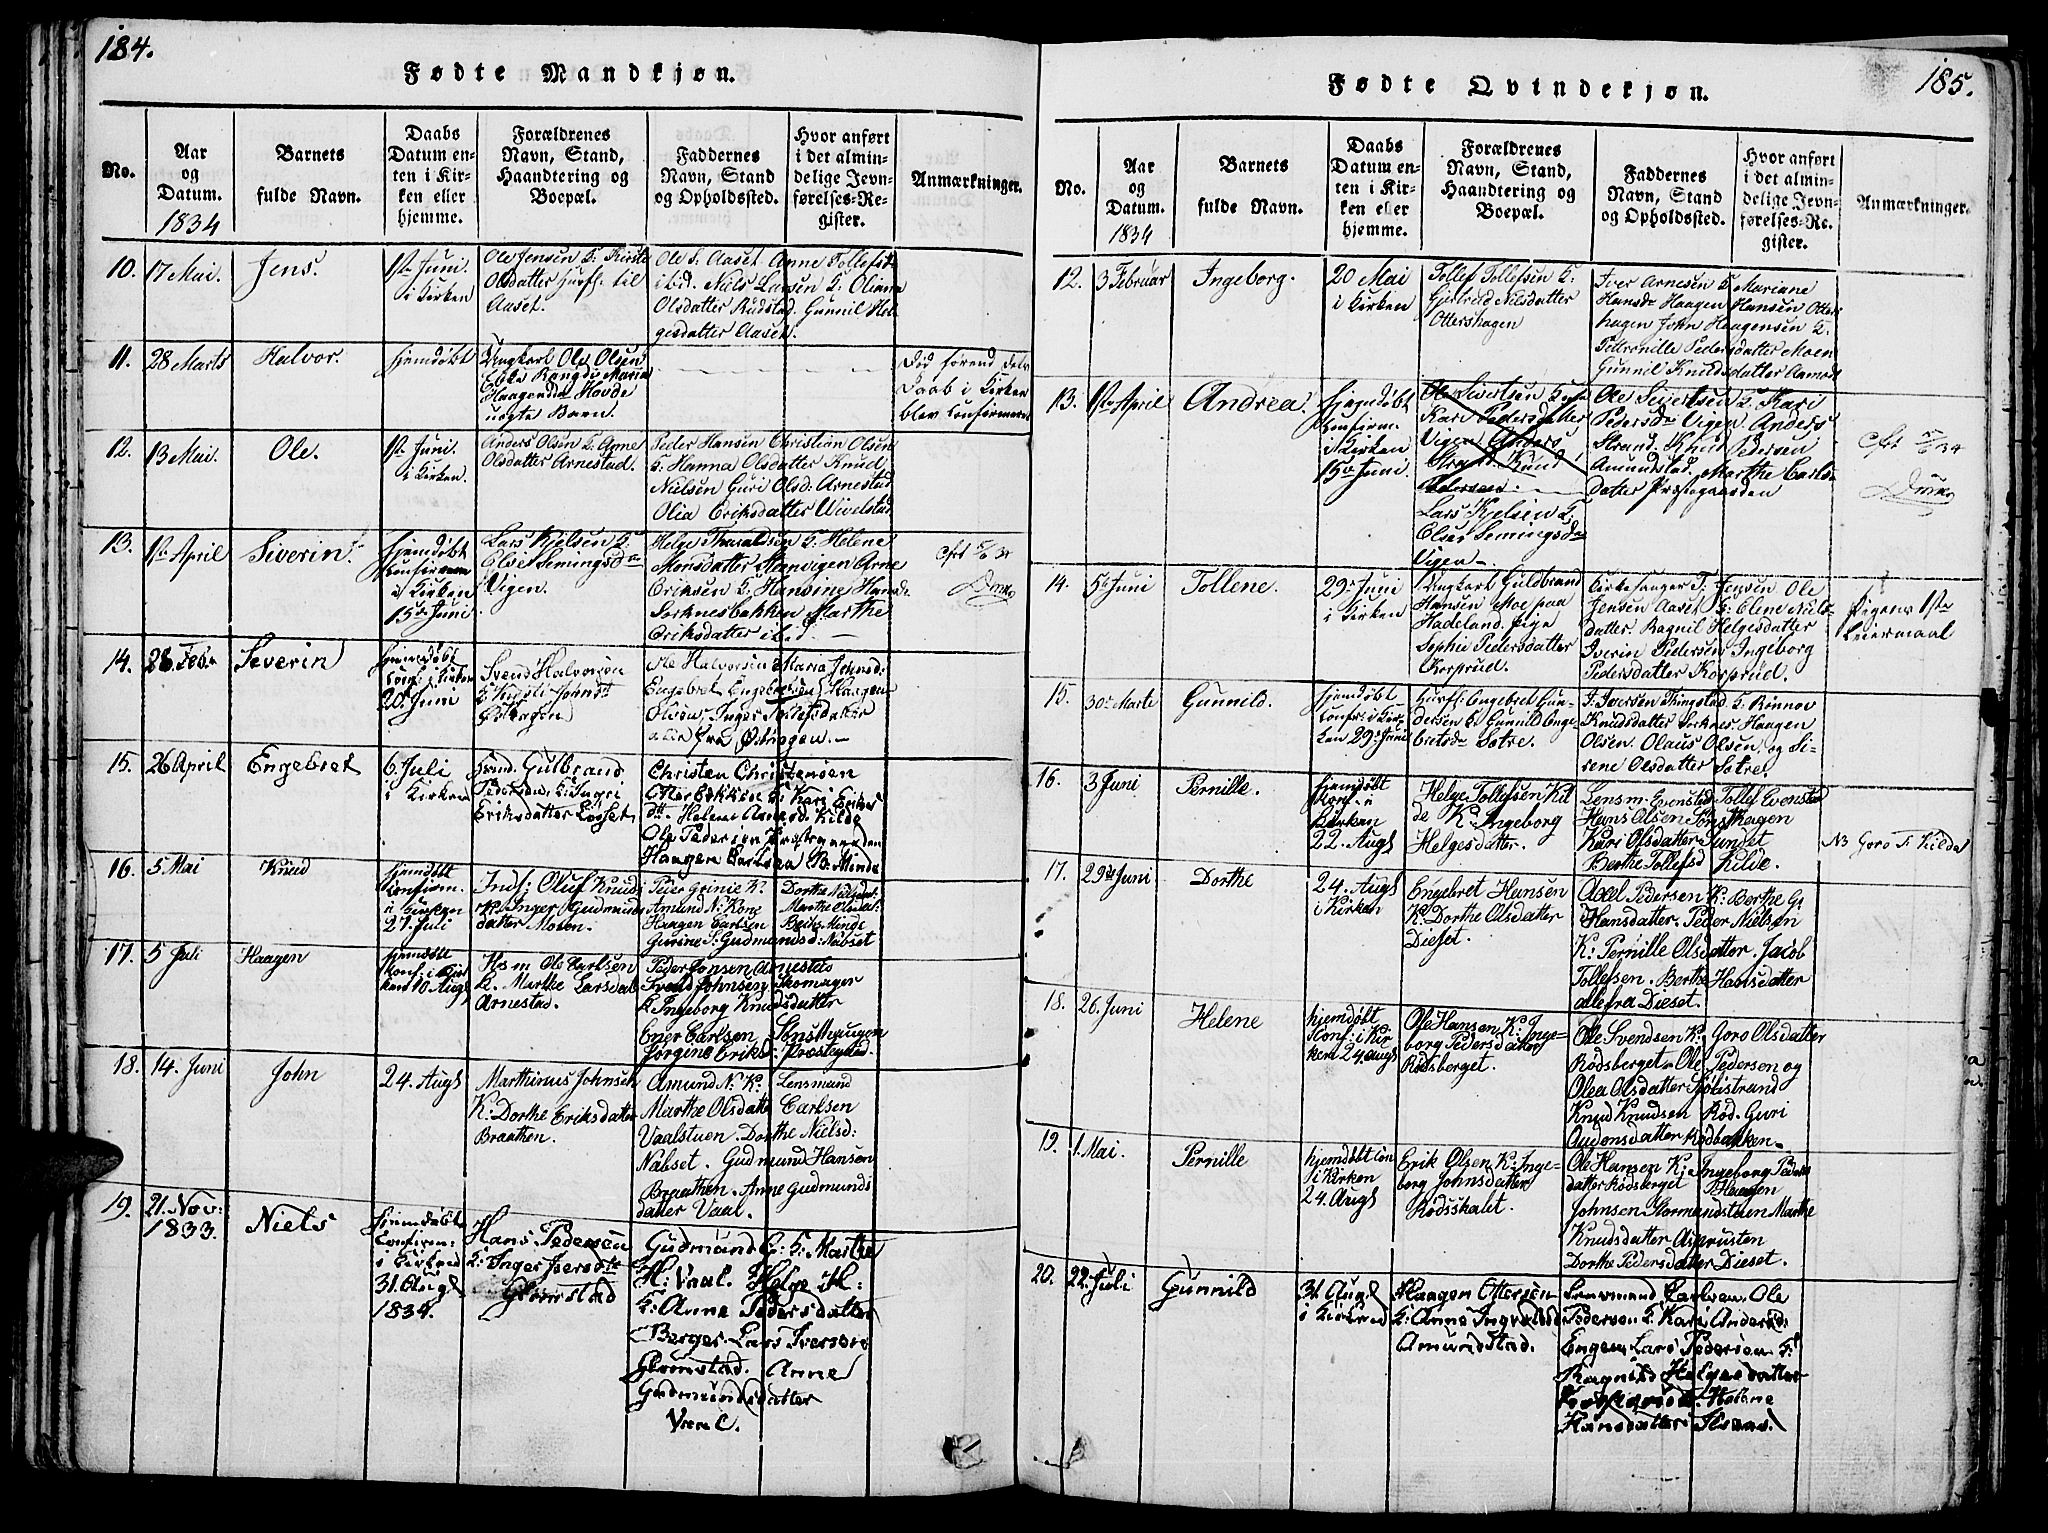 184.
Fødte Mandkjøn.
No.
Aar
og
Datum.
1834
Barnets
fulde Navn.
Daabs
Datum en-
ten i Kir-
ken eller
hjemme.
Forældrenes
Navn, Stand,
Haandtering og
Boepæl.
Faddernes
Navn, Stand
og Opholdssted.
Hvor anført
i det almin-
delige Jevn-
førelses-Re-
gister.
Anmærkninger.
10.
17 Mai.
Jens.
1ste Juni.
i Kirken
Ole Jensen K: Kirstie
Olsdatter Huusf. til
Aaset.
Ole S. Aaset Anne
ibid. Niels Larsen K: Oliana
Olsdatter Rudstad. Gunnil Hel-
gesdatter Aaset.
11.
28 Marts
Halvor.
hjemdøbt
Ungkarl Ole Olsen
Maria
Haagensdr Hovde
uægte Barn.
Død førend dets
Daab i Kirken
blev Confirmeret
12.
13 Mai.
Ole.
1ste Juni.
i Kirken.
Anders Olsen K: Anne
Olsdatter Arnestad.
Peder Hansen Christian Olsen
K: Hanna Olsdatter Knud
Nielsen Guri Olsd: Arnestad
Olia Eriksdatter Wivelstad
13.
1ste April
Siverin.
hjemdøbt
Confirmen
i Kirken
15de Juni
Lars Kjelsen K:
Else Semingsdr
Vigen.
Helge K: Helene
Monsdatter Arne
Eriksen K: Hansine Hansd:
Sorknesbakken Marthe
Eriksdatter ibid.
14.
28. Febr
Severin
hjemdøbt
Conf: i Kirken
20. Juni
Svend Halvorsen
K: Kirsti Johnsdr
Ottragen
Ole Halvorsen Maria Johnsd:
Engebret Engebretsen Haagen
Olsen, Inger Tollefsdatter
alle fra Ottragen.
15.
26 April
Engebret
6 Juli
i Kirken
Huusm. Gulbrand
Pedersen, K: Inger
Eriksdatter Løset
Christen Christensen
Otterbekken K: Kari Eriks
Dtr. Helene Amunds. Kilde
Ole Pedersen Præstegaarden
Haagen Carlsen
16.
5 Mai
Knud
hjemdøbt
Confirm.
i Kirken
27. Juli
Inds: Oluf Knuds
K: Inger Gudmunds
datter Moen.
Peder Grinie K.
Amund N: Kone
Haagen Carlsen
Gurine S: Gudmundsd: Nabset
Dorthe Nielsdat:
Marthe Olsdat:
17.
5 Juli
Haagen
hjemdøbt
Konf: i Kir
ken 10 Augt
Husm Ole Carlsen
K. Marthe Larsdat
Arnestad.
Peder Jonsen Arnestad
Svend Johnsen Skomager
K Ingeborg Knudsdatter
Ener Carlsen
Jørgine Eriksd: Prestegrd.
18.
14. Juni
John
24. Augt
Marthinus Johnsen
K: Dorthe Eriksdatter
Braathen.
Amund N: K. Lensmand
Marthe Olsdatter Carlsen
Vaalstuen. Dorthe Nielsd:
Nabset. Gudmund Hansen
Braathen. Anne Gudmunds
datter Vaal.
19.
21. Nov:
1833.
Niels
hjemdøbt
Confirm:
i Kirken
31. Augt
1834.
Hans Pedersen
K: Inger Iversdtr
Glomstad
Gudmund G: K: Marthe
H: Vaal. Helge H:
K: Anne Pedersdatter
Berger. Lars Iversen
Glomstad. Anne
Gudmundsdatter
Vaal.
185.
Fødte Qvindekjøn.
No.
Aar
og
Datum.
1834
Barnets
fulde Navn.
Daabs
Datum en-
ten i Kir-
ken eller
hjemme.
Forældrenes
Navn, Stand,
Haandtering og
Boepæl.
Faddernes
Navn, Stand
og Opholdssted.
Hvor anført
i det almin-
delige Jevn-
førelses-Re-
gister.
Anmærkninger.
12.
3 Februar
Ingeborg.
20 Mai
i Kirken
Tollef Tollefsen K:
Gjertrud Nilsdatter
Ottershagen
Iver Arnesen K Mariane
Hansdr Haagen Hansen Otters
hagen John Haagensen K.
Petternille Pedersdatter Moen
Gunnil Knudsdatter
13.
1ste April
Andrea.
hjemdøbt
Confirm.
i Kirken
15de Juni.
Ole Sivertsen K
Kari Pedersdatter
Vigen Anders
Strand. Knud
Pedersen.
Lars Kjelsen K:
Else Semingsdr
Vigen
Ole Seiertsen K Kari
Pedersdr Vigen Anders
Strand. Knud Pedersen
Amundstad. Marthe Carls-
datter Præstegaarden
14.
5te Juni
Tollene.
29. Juni
i Kirken
Ungkarl Guldbrand
Hansen Moe paa
Hadeland. Pige
Sophie Pedersdatter
Korprud.
Kirkesanger T. Jensen Ole
Jensen Aaset K: Elene Niels-
datter. Ragnil Helgesdatter
Iverin Pedersen Ingeborg
Pedersdatter Korprud.
Pigens 1ste
Leiermaal
15.
30. Marts
Gunnild.
hjemdøbt
Confr: i Kir-
ken 29. Juni
Huusf: Engebret Gun-
dersen K: Gunnild Enge-
bretsdr Sætre.
I. Iversen Thingstad K: Rønnov
Knudsdatter Sorknes. Haagen
Olsen. Olaus Olsen, og Si-
rene Olsdatter Sætre.
16.
3 Juni
Pernille.
hjemdøbt
Konf. i
Kirken
22. Augt
Helge Tollefsen Kil
de K: Ingeborg
Helgesdatter.
Lensm. Evenstad Tollef Evenstad
Hans Olsen
Kari Olsdatter Sundet
Berthe Tollefsd Kilde.
NB Goro T: Kilde
17.
29de Juni
Dorthe
24. Augt
i Kirken
Engebret Hansen
K: Dorthe Olsdatter
Dieset.
Axel Pedersen K: Berthe G:
Hansdatter. Peder Nielsen
K: Pernille Olsdatter. Jacob
Tollefsen. Berthe Hansdatter
alle fra Dieset.
18.
26. Juni
Helene
hjemdøbt
Konf: i Kir
ken 24. Augt
Ole Hansen K: Inge-
borg Pedersdatter
Rødsberget.
Ole Svendsen K: Goro Olsdatter
Rødsberget Ole Pedersen og
Olea Olsdatter
Knud Knudsen Rød. Guri
Audensdatter Rødbakken
19.
1. Mai.
Pernille
hjemdøbt Con
i Kirken
24. Augt
Erik Olsen K: Inge-
borg Johnsdatter
Rødsskalet.
Ole Hansen K: Ingeborg Peders
datter Rødsberget Haagen
Johnsen Gormundstuen Marthe
Knudsdatter Asprusten
Dorthe Pedersdatter Dieset.
20.
22. Juli
Gunnild
31. Augt
i Kirken
Haagen Ottersen
K: Anne Ingvaldsd
Amundstad.
Lensmand Carlsen. Ole
Pedersen K: Kari Andersd:
Engen. Lars Pedersen K:
Ragnild Helgesdatter
Helene
Hansdatter